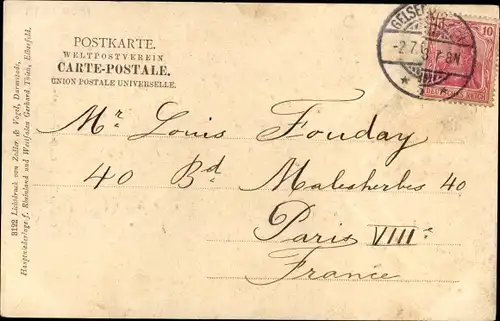 POSTKARTE.
WELTPOSTVEREIN
CARTE-POSTALE.
UNION POSTALE UNIVERSELLE.
10
DEUTSCHES REICH
-2.7.
7-8N
Mr Louis Fouday
40 Bd Malesherbes 40
Paris VIIIe
France
3122 Lichtdruck von Zedler & Vogel, Darmstadt,
Hauptniederlage f. Rheinland und Westfalen Gerhard Thien, Elberfeld.